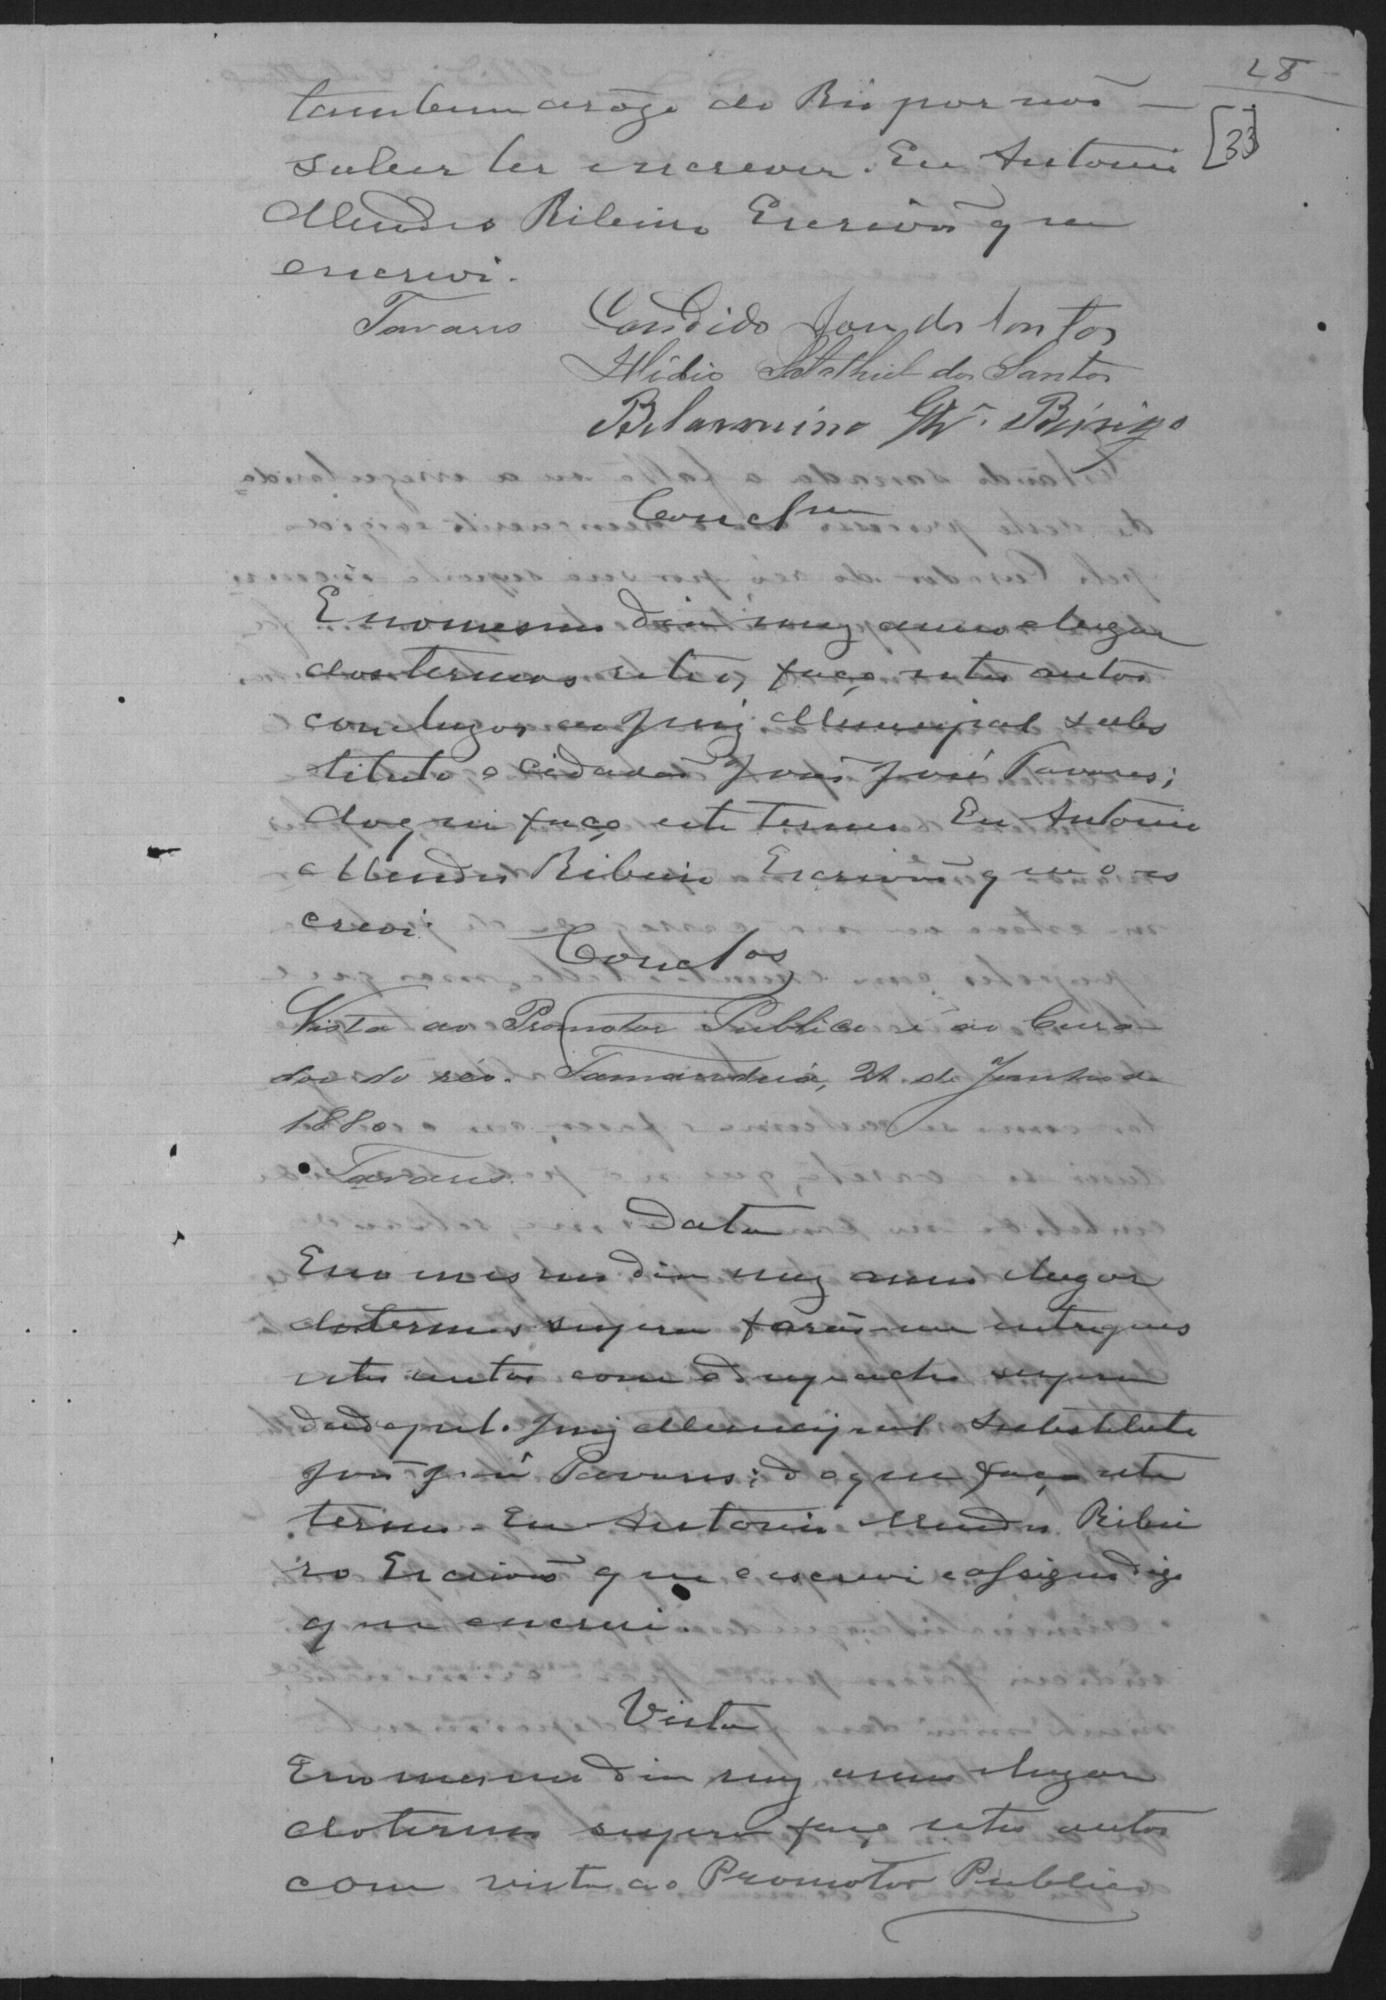 28
[33]
tambem arôgo do Réo por não
saber ler escrever. Eu Antonio
Mendes Ribeiro Escrivão que
escrevi.
Tavares Candido José dos Santos
Ilidio Salathiel dos Santos
Belarmino
Conclm
E no mesmo dia mez anno elugar
dos termos retro, faço estes autos
conclusos ao Juiz Municipal subs
tituto o cidadão João José Tavares;
do que faço este termo Eu Antonio
Mendes Ribeiro Escrivão que o es
crevi.
Conclos
Vista ao Promotor Publico e ao Cura-
dor do réo. Tamanduá, 21 de Junho de
1880
Tavares.
Data
E no mesmo dia mez anno elugar
do termo supra forão-me entregues
estes autos com o despacho supra
dado pelo Juiz Municipal Substituto
João José Tavares; do que faço este
termo. Eu Antonio Mendes Ribei
ro Escrivão que o escrevi e assigno digo
que escrevi.
Vista
E no mesmo dia mez anno elugar
do termo supra faço estes autos
com vista ao Promotor Publico